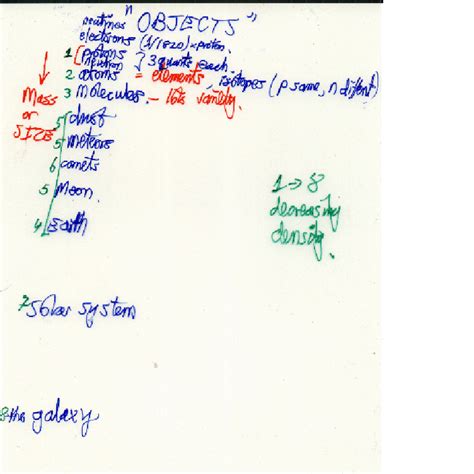 neutrinos "OBJECTS"
electrons (1/1820) × proton.
1 [protons
neutron } 3 quarks each.
2 atoms = elements, isotopes (p same, n different)
3 molecules. – lots variety.
Mass
or
SIZE
5 dust
5 meteors
6 comets
5 Moon.
4 Earth
1 → 8
decreasing
density.
7 solar system
8 the galaxy